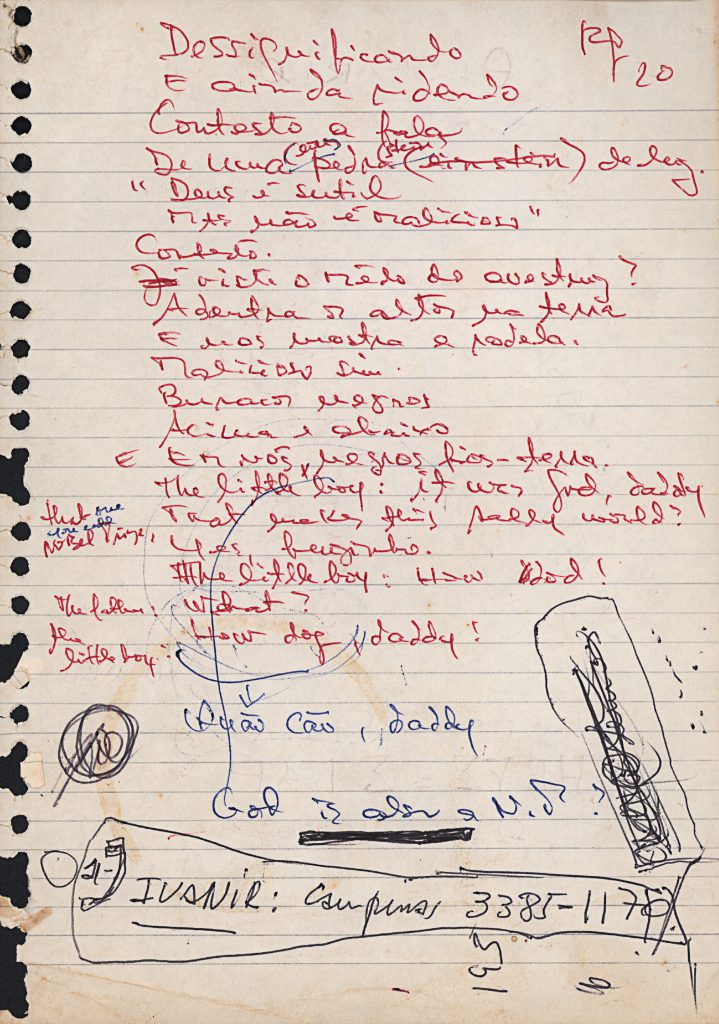 Dessignificando
E ainda ridendo
RP 20
Contesto a fala
De uma (ein) pedra (stein) (einstein) de luz.
"Deus é sutil
Mas não é malicioso"
Contesto.
Já viste o rêdo do avestruz?
Adentra os altos na terra
E nos mostra a rodela.
Malicioso sim.
Buracos negros
Acima e abaixo
E Em nós, negros fios-terra.
The little boy: it was God, daddy
That makes this world?
that one you call
Nobel
Yes, benzinho.
The little boy: How God!
The father: What?
the little boy: How dog, daddy!
Quão cão, daddy
God is also a N.P.?
IVANIR: Campinas 3385-1176
195